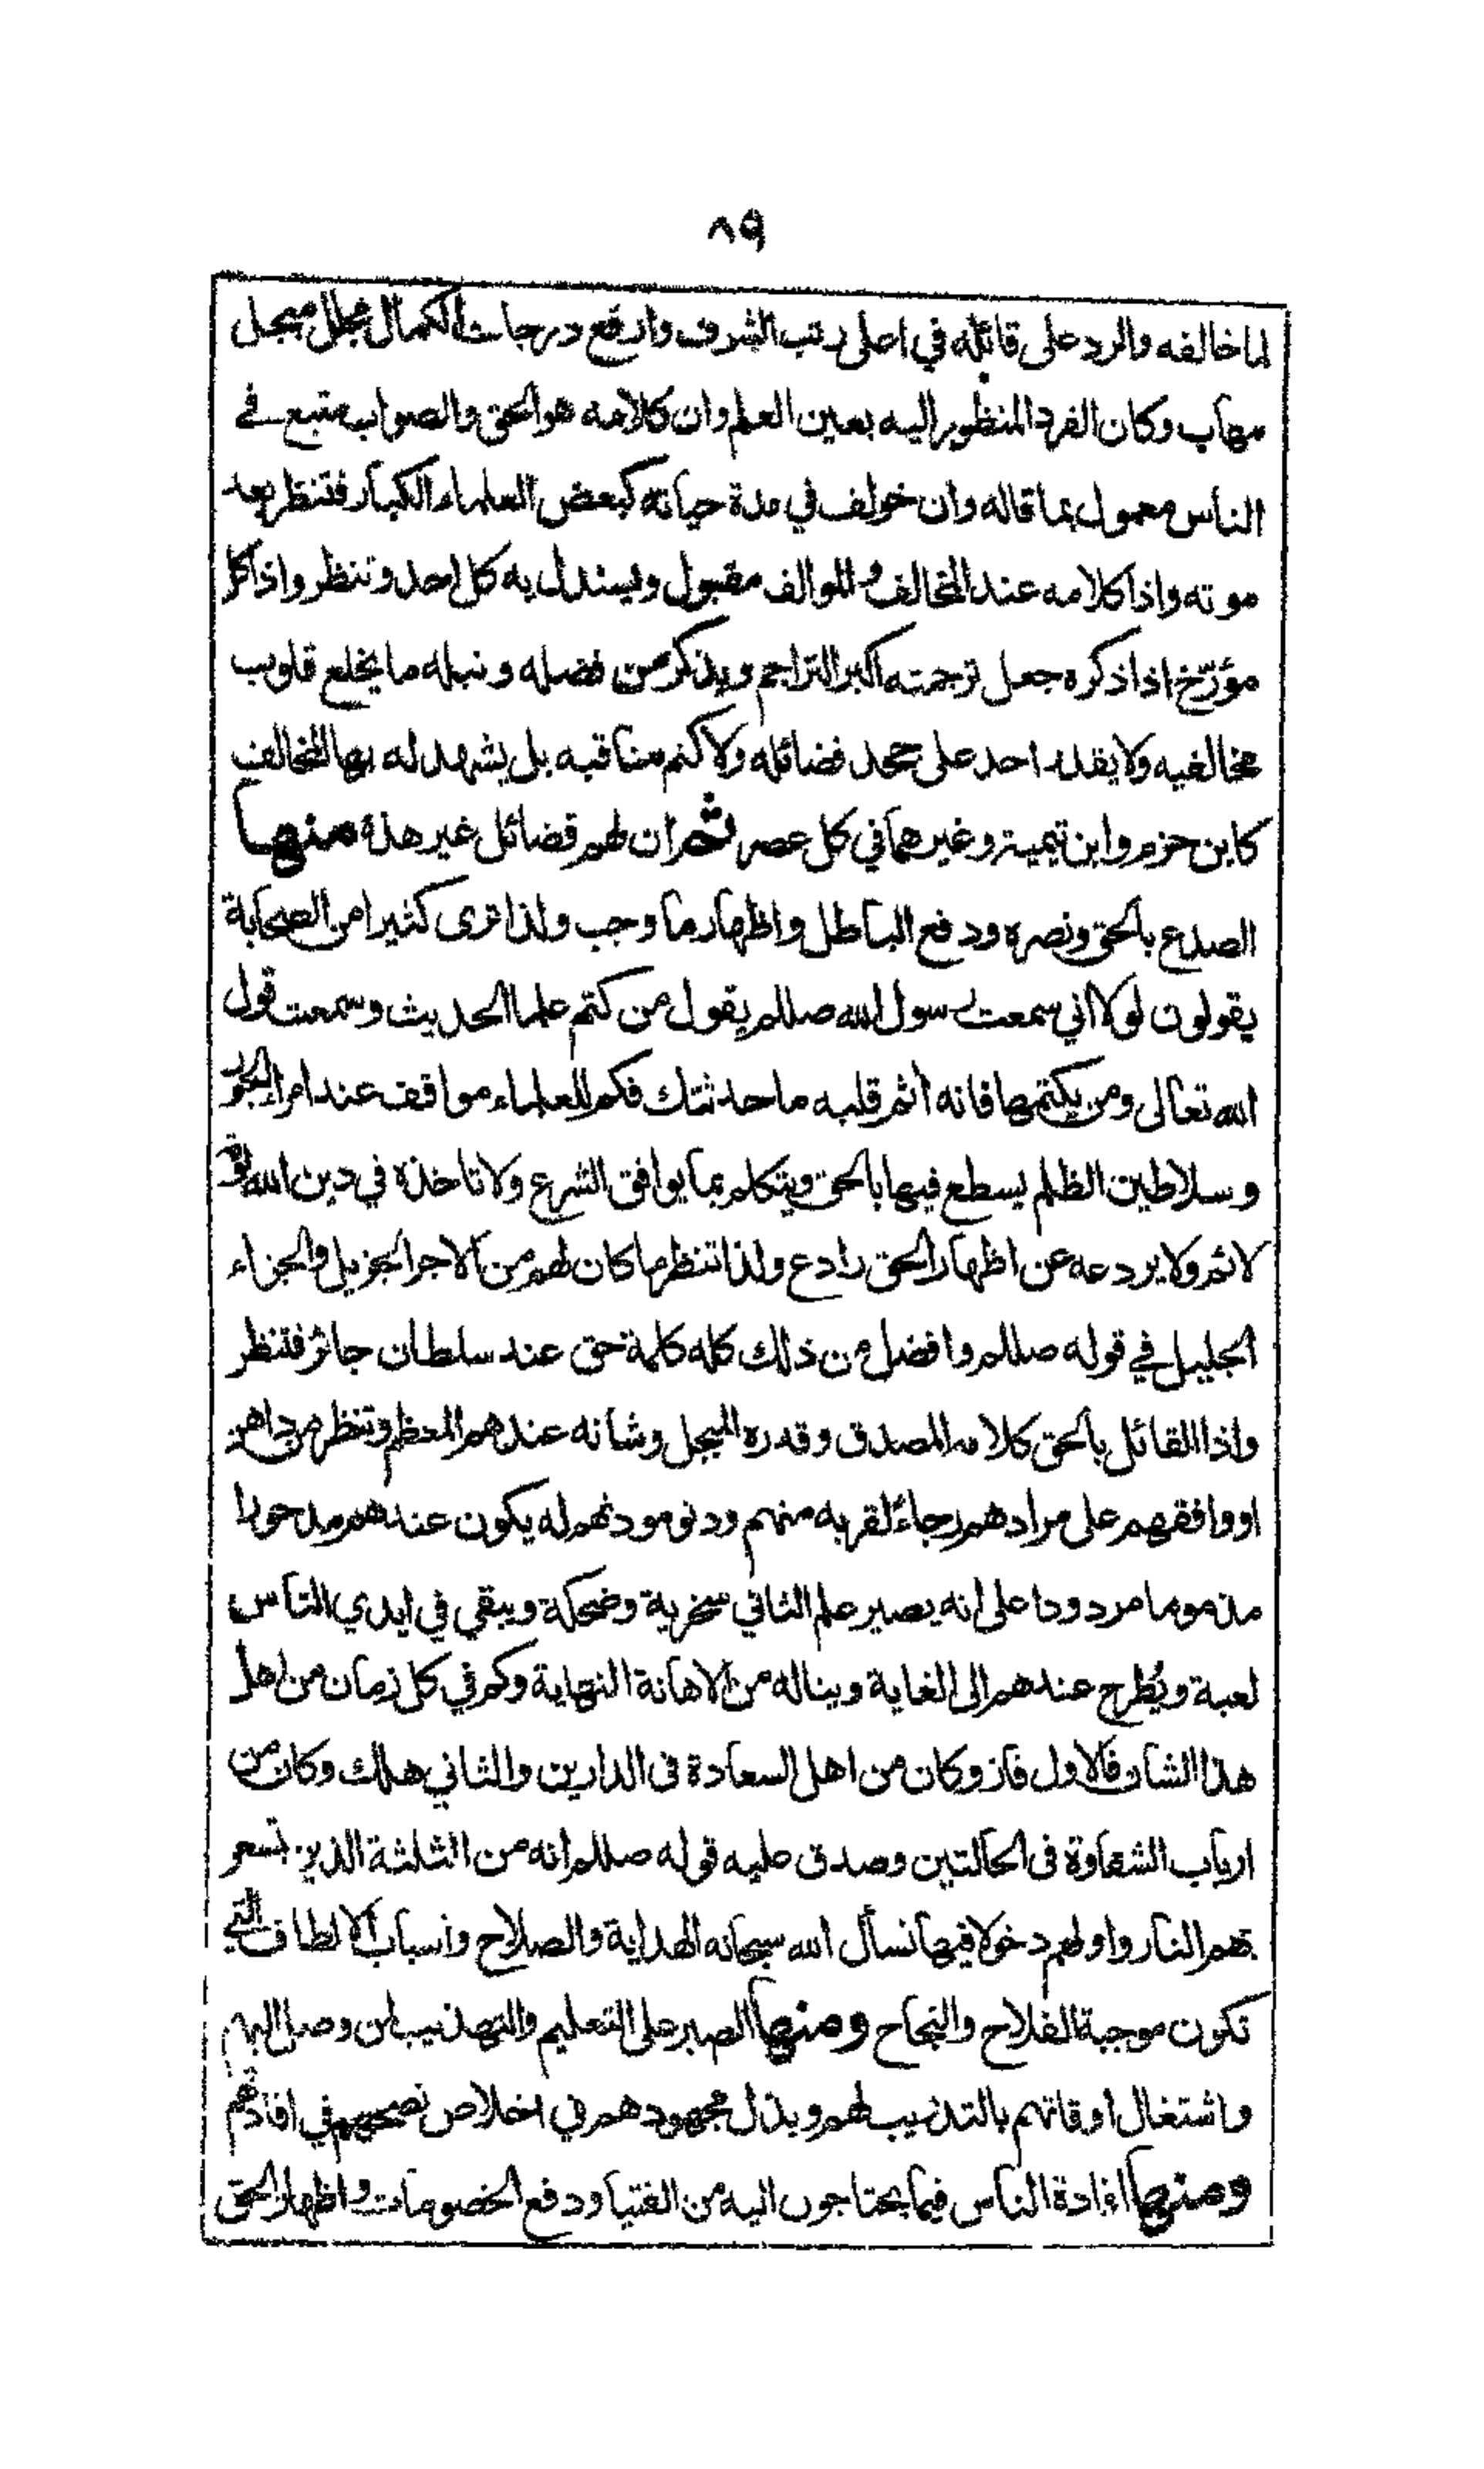 ٨٩
لما خالفه والرد على قائله في اعلى رتب الشرف وارفع درجات الكمال مجلل مبجل
مهاب وكان الفرد المنظور اليه بعين العلم وان كلامه هو الحق والصواب متبع في
الناس معمول بما قاله وان خولف في مدة حياته كبعض العلماء الكبار فتنظر بعد
موته واذا كلامه عند المخالف والموالف مقبول ويستدل به كل احد وتنظر واذا كل
مؤرّخ اذا ذكره جعل ترجمته اكبر التراجم ويذكر من فضله ونبله ما يخلع قلوب
مخالفيه ولا يقدر احد على جحد فضائله ولا كتم مناقبه بل يشهد له بها المخالف
كابن حزم وابن تيمية وغيرهما في كل عصر ثم ان لهم فضائل غير هذه منها
الصدع بالحق ونصره ودفع الباطل واظهار ما وجب ولذا ترى كثيرا من الصحابة
يقولون لولا اني سمعت رسول الله صللم يقول من كتم علما الحديث وسمعت قول
الله تعالى ومن يكتمها فانه أثم قلبه ما حدثتك فكم للعلماء مواقف عند امراء الجور
وسلاطين الظلم يسطع فيها بالحق ويتكلم بما يوافق الشرع ولا تاخذه في دين الله لومة
لائم ولا يردعه عن اظهار الحق رادع ولذا تنظر ما كان لهم من الاجر الجزيل والجزاء
الجليل في قوله صللم وافضل من ذلك كله كلمة حق عند سلطان جائر فتنظر
واذا القائل بالحق كلامه المصدق وقدره المبجل وشانه عندهم المعظم وتنظر من داهن
او وافقهم على مرادهم رجاءً لقربه منهم ودنو مودتهم له يكون عندهم مدحورا
مذموما مردودا على انه يصير علم الثاني سخرية وضحكة ويبقى في ايدي الناس
لعبة ويُطرح عندهم الى الغاية ويناله من الاهانة النهاية وكم في كل زمان من اهل
هذا الشان فالاول فاز وكان من اهل السعادة فى الدارين والثاني هلك وكان من
ارباب الشقاوة فى الحالتين وصدق عليه قوله صللم انه من الثلثة الذين تسعر
بهم النار واولهم دخولا فيها نسأل الله سبحانه الهداية والصلاح واسباب الالطاف التي
تكون موجبة الفلاح والنجاح ومنها الصبر على التعليم والتهذيب لمن وصل اليهم
واشتغال اوقاتهم بالتدريب لهم وبذل مجهودهم في اخلاص نصحهم في افادتهم
ومنها افادة الناس فيما يحتاجون اليه من الفتيا ودفع الخصومات واظهار الحق